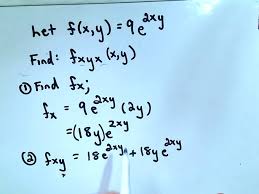 Let f(x,y) = 9e^{2xy}
Find: f_{xyx}(x,y)
① Find f_x;
f_x = 9e^{2xy}(2y)
= (18y)e^{2xy}
② f_{xy} = 18e^{2xy} + 18ye^{2xy}